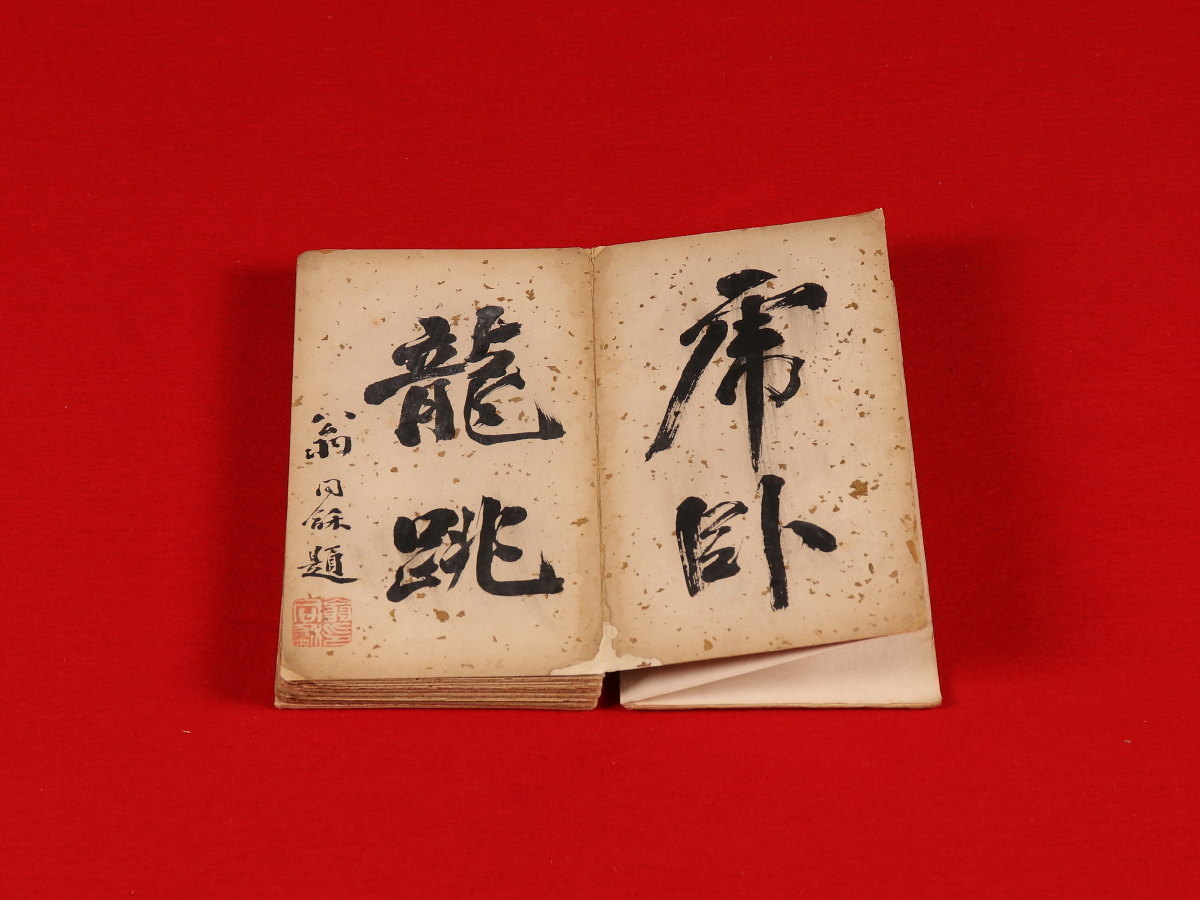 虎卧
龍跳
翁同龢題